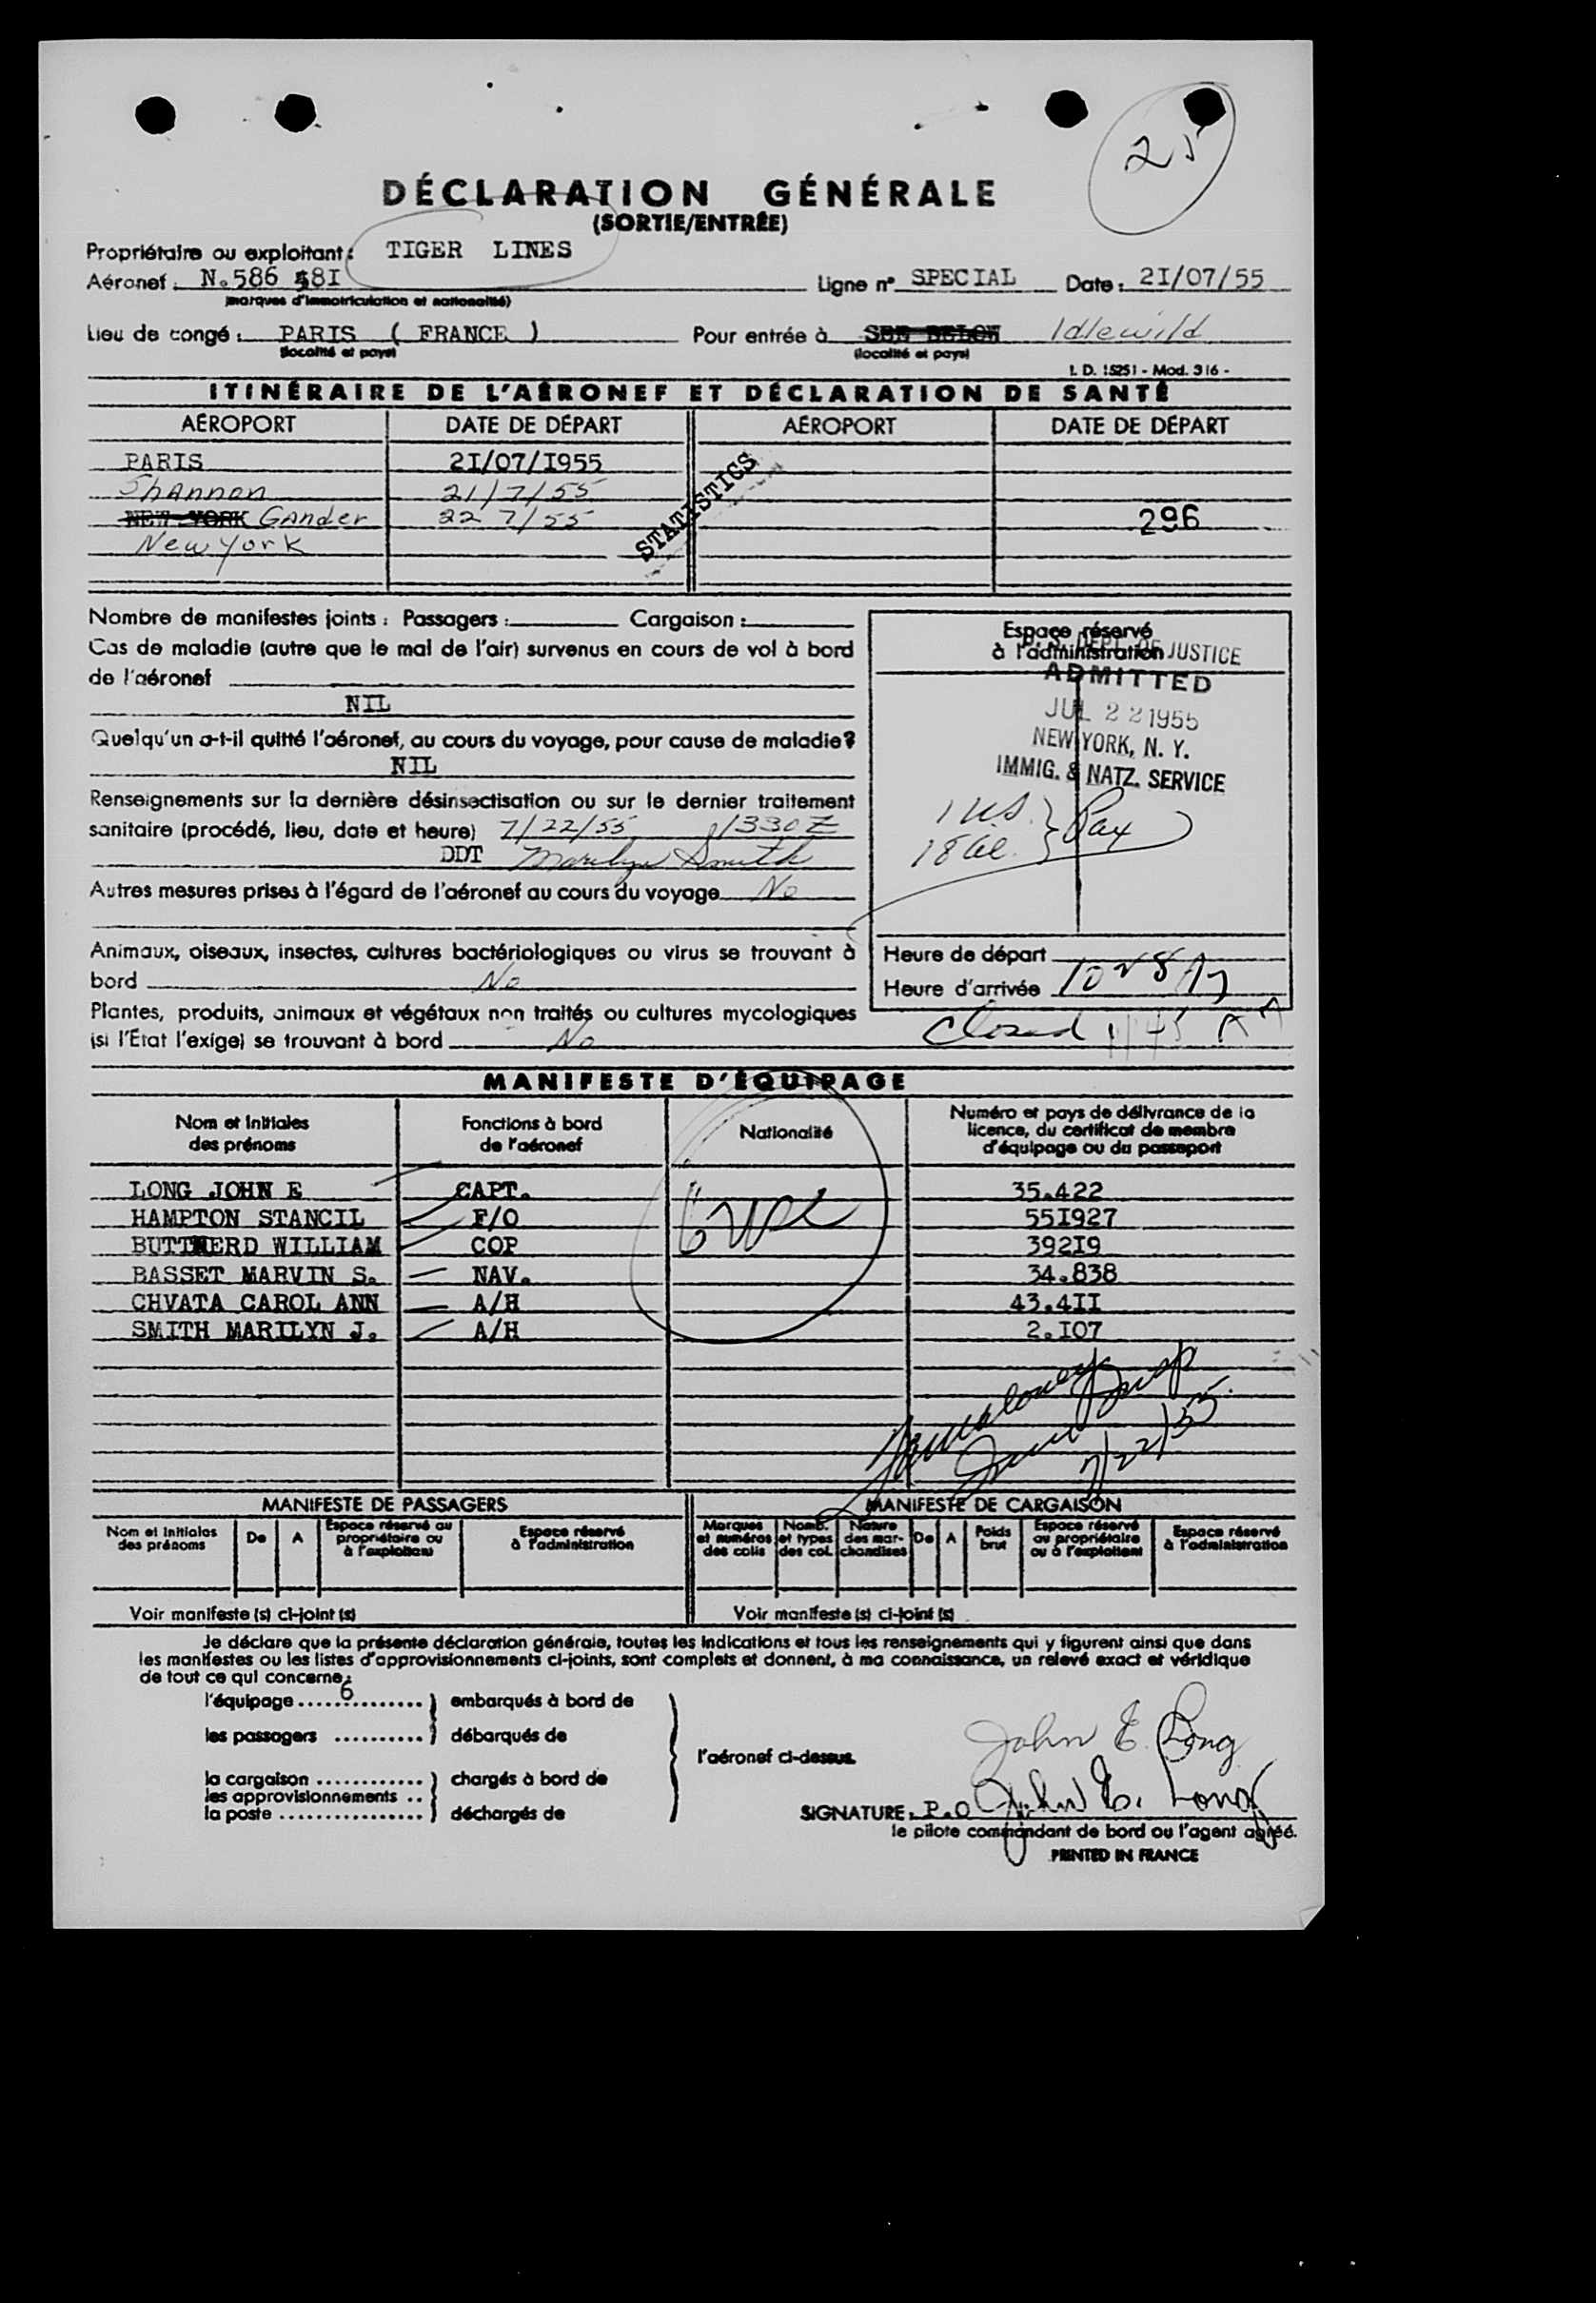 25
DÉCLARATION GÉNÉRALE
(SORTIE/ENTRÉE)
Propriétaire ou exploitant : TIGER LINES
Aéronef : N.586 58I Ligne n° SPECIAL Date : 2I/07/55
(marques d'immatriculation et nationalité)
Lieu de congé : PARIS ( FRANCE ) Pour entrée à SEE BELOW Idlewild
(localité et pays) (localité et pays)
I. D. 15251 - Mod. 316 -
ITINÉRAIRE DE L'AÉRONEF ET DÉCLARATION DE SANTÉ
AÉROPORT DATE DE DÉPART AÉROPORT DATE DE DÉPART
PARIS 2I/07/I955
Shannon 21/7/55
NEW YORK Gander 22 7/55 296
New York
STATISTICS
Nombre de manifestes joints : Passagers : Cargaison :
Cas de maladie (autre que le mal de l'air) survenus en cours de vol à bord
de l'aéronef
NIL
Quelqu'un a-t-il quitté l'aéronef, au cours du voyage, pour cause de maladie?
NIL
Renseignements sur la dernière désinsectisation ou sur le dernier traitement
sanitaire (procédé, lieu, date et heure) 7/22/55 1330Z
DDT Marilyn Smith
Autres mesures prises à l'égard de l'aéronef au cours du voyage No
Animaux, oiseaux, insectes, cultures bactériologiques ou virus se trouvant à
bord No
Plantes, produits, animaux et végétaux non traités ou cultures mycologiques
(si l'État l'exige) se trouvant à bord No
Espace réservé
à l'administration
DEPT. OF JUSTICE
ADMITTED
JUL 22 1955
NEW YORK, N. Y.
IMMIG. & NATZ. SERVICE
1 US. } Pax
18 al.
Heure de départ
Heure d'arrivée 1028 A
Closed 1145
MANIFESTE D'ÉQUIPAGE
Nom et Initiales des prénoms Fonctions à bord de l'aéronef Nationalité Numéro et pays de délivrance de la licence, du certificat de membre d'équipage ou du passeport
LONG JOHN E CAPT. 35.422
HAMPTON STANCIL F/O 55I927
BUTTNERD WILLIAM COP 392I9
BASSET MARVIN S. NAV. 34.838
CHVATA CAROL ANN A/H 43.4II
SMITH MARILYN J. A/H 2.I07
6
7/22/55
MANIFESTE DE PASSAGERS MANIFESTE DE CARGAISON
Nom et Initiales des prénoms De A Espace réservé au propriétaire ou à l'exploitant Espace réservé à l'administration Marques et numéros des colis Nomb. et types des col. Nature des marchandises De A Poids brut Espace réservé au propriétaire ou à l'exploitant Espace réservé à l'administration
Voir manifeste (s) ci-joint (s) Voir manifeste (s) ci-joint (s)
Je déclare que la présente déclaration générale, toutes les indications et tous les renseignements qui y figurent ainsi que dans
les manifestes ou les listes d'approvisionnements ci-joints, sont complets et donnent, à ma connaissance, un relevé exact et véridique
de tout ce qui concerne :
l'équipage ... 6 ... embarqués à bord de
les passagers .......... débarqués de
l'aéronef ci-dessus.
la cargaison ............ chargés à bord de
les approvisionnements ..
la poste ................ déchargés de
John E. Long
SIGNATURE : P.O John E. Long
le pilote commandant de bord ou l'agent agréé.
PRINTED IN FRANCE